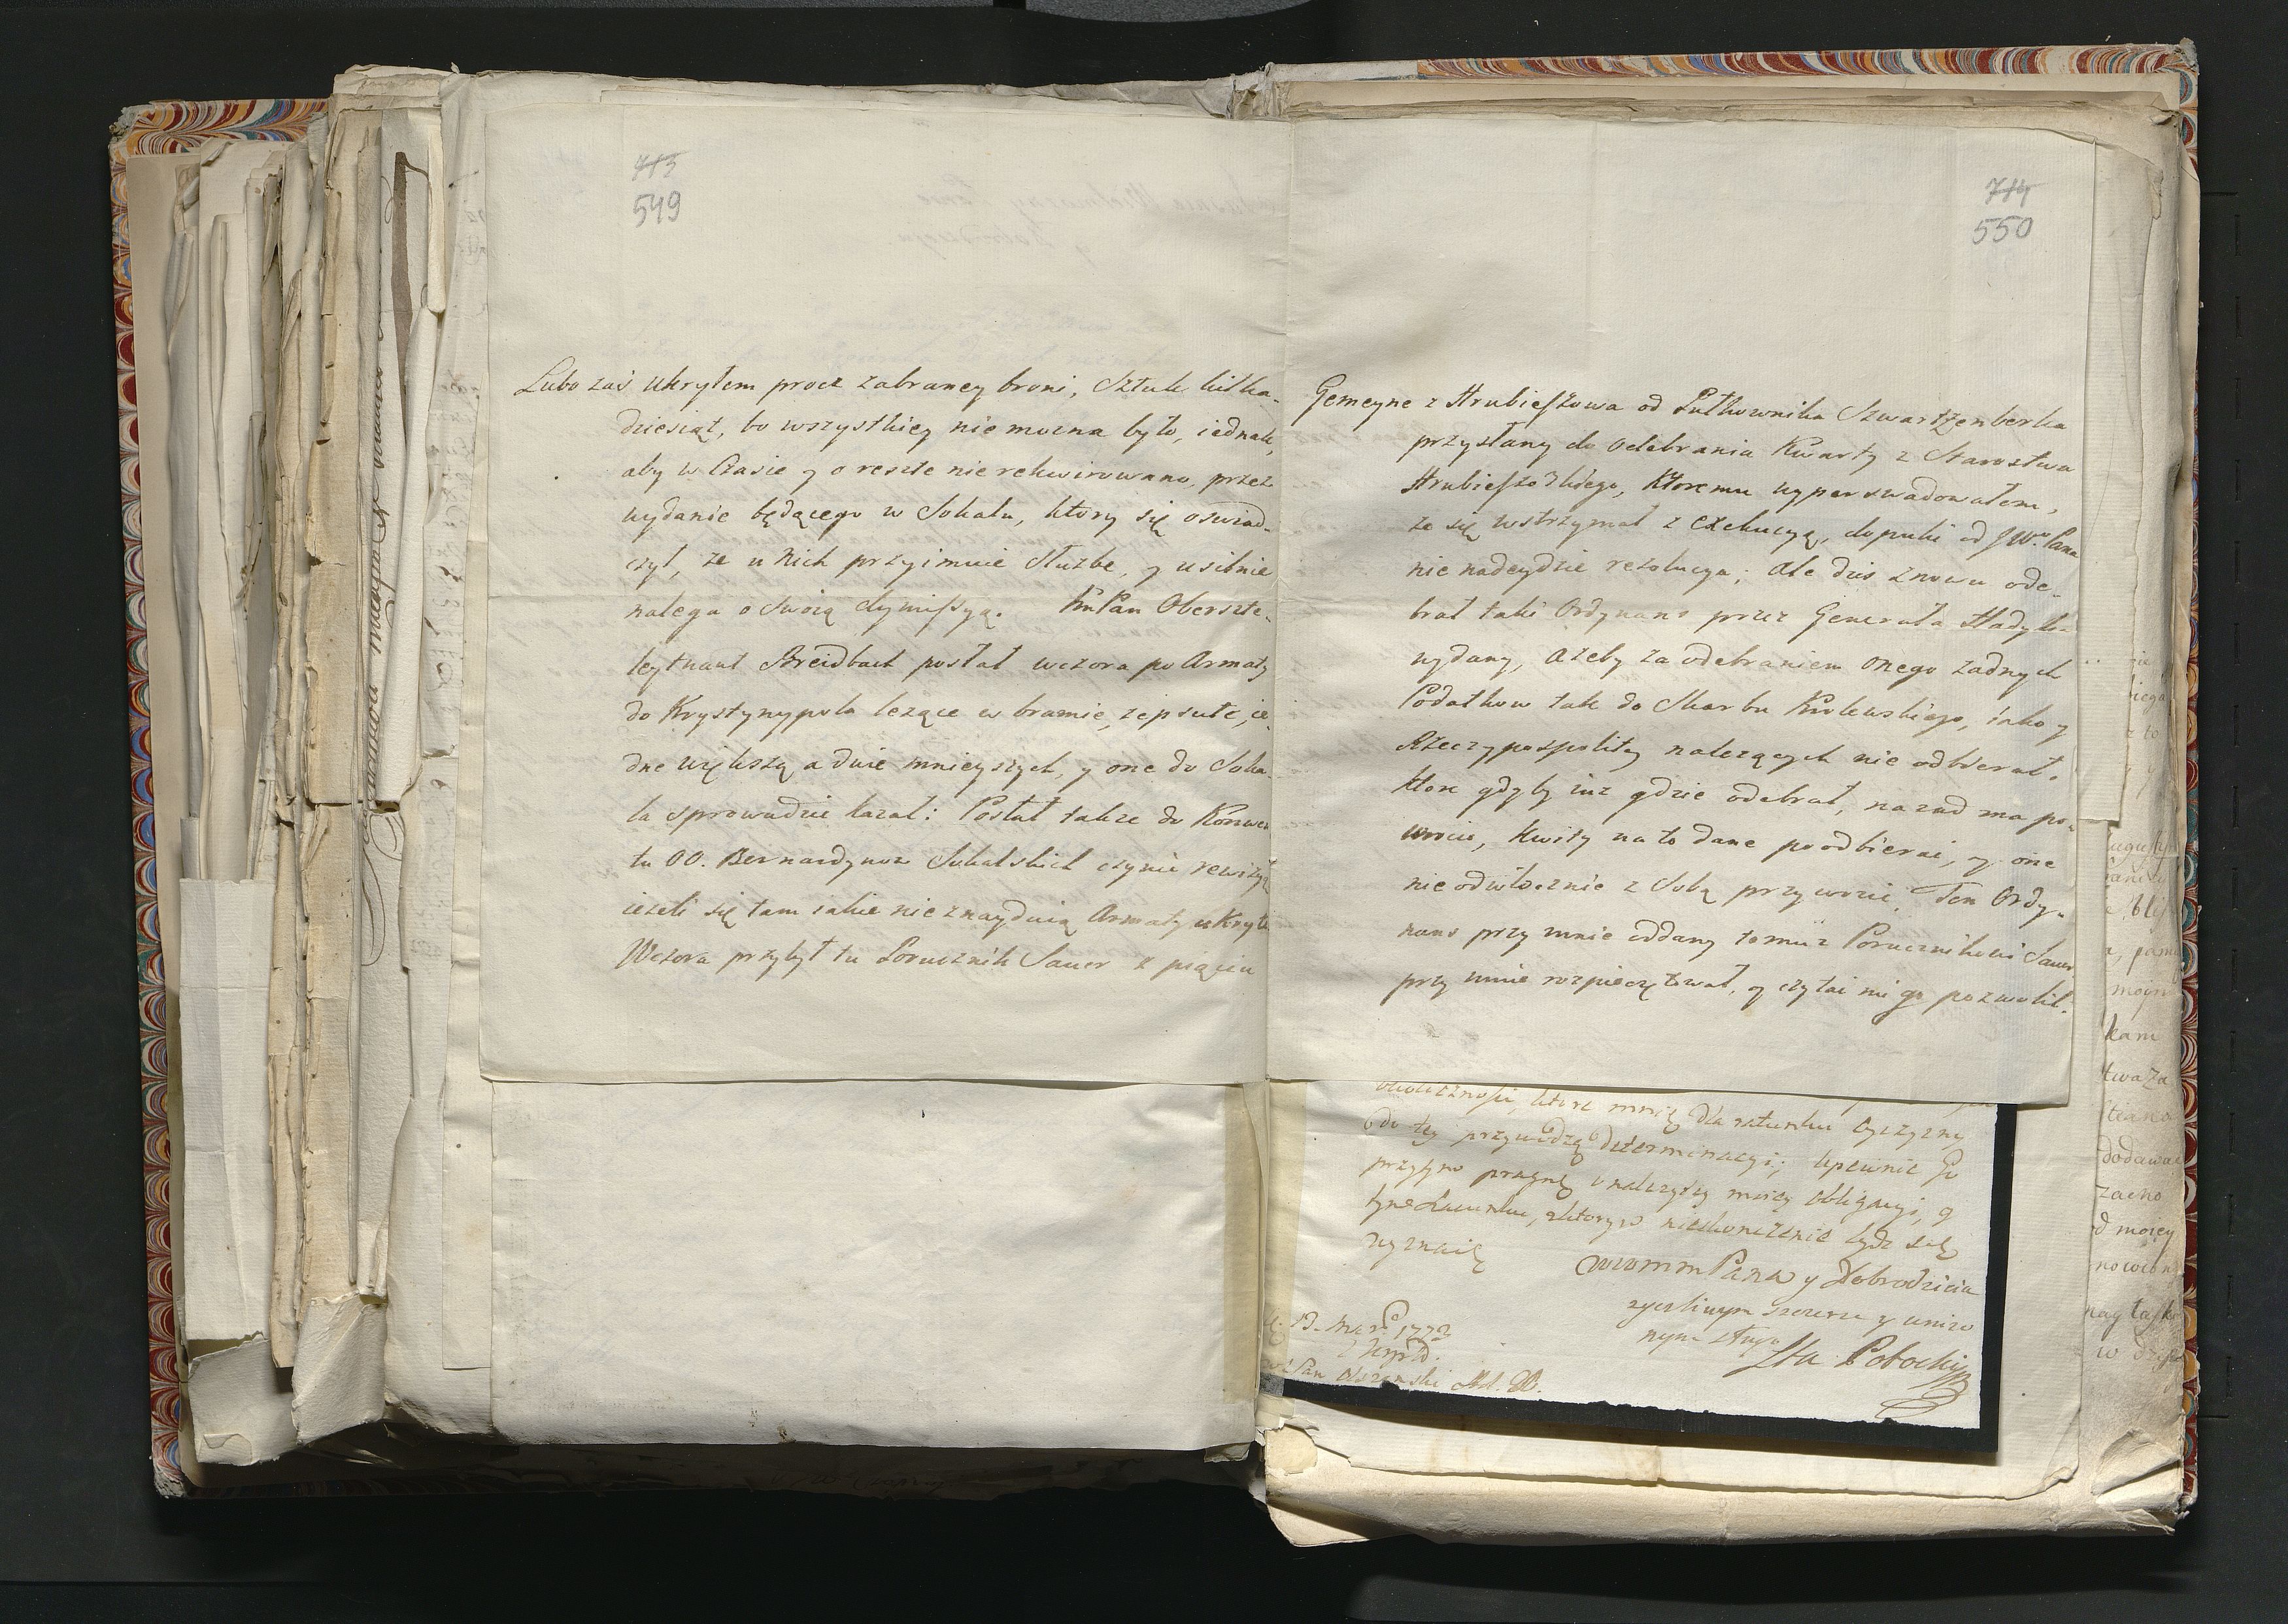 713
549
Lubo zaś ukryłem procz zabraney broni, Sztuk kilka-
dziesiąt, bo wszystkiey nie mozna było, iednak,
aby w Czasie y o reszte nie rekwirowano, przez
wydanie będącego w Sokalu, ktory się oswiad-
czył, ze u Nich przyimuie Służbe, y usilnie
nalega o Swoią dymissyą. Pan Oberszte-
leytnant Breidbach posłał wczora po Armaty
do Krystynypola lezące w bramie, zepsute, ie-
dne większą a dwie mnieyszych, y one do Soka-
la sprowadzic kazał: Posłał takze do Konwen
tu OO. Bernardynow Sokalskich czynic rewizyą
iezeli się tam iakie nie znayduią Armaty ukryte
Wczora przybył tu Porucznik Sauer z pięciu
714
550
Gemeyne z Hrubieszowa od Pułkownika Szwartzenberka
przysłany do Odebrania Kwarty z Starostwa
Hrubieszowskiego, Ktoremu wyperswadowałem,
ze się wstrzymał z exekucyą, dopuki od JWo Pana
nie nadeydzie rezolucya; Ale dzis znowu ode-
brał taki Ordynans przez Generała Hadyka
wydany, azeby za odebraniem onego zadnych
Podatkow tak do Skarbu Krolewskiego, iako y
Rzeczypospolitey nalezących nie odbierał.
ktore gdyby iuz gdzie odebrał, nazad ma po-
wrocic, Kwity na to dane poodbierac, y one
nie odwłocznie z Sobą przywozic. Ten Ordy-
nans przy mnie oddany tomuz Porucznikowi Sauer
przy mnie rozpieczętował, y czytac mi go pozwolił.
okolicznosci, ktore mnię dla ratunku Oyczyzny
do tey przywodzą determinacyi; upewnic Go
przytym pragnę o nalezytey moiey obligacyi, y
tym Szacunku, z ktorym nieskonczenie bydz salę
wyznaię
WWMM Pana y Dobrodzieia
zyczliwym szczerze y unizo
nym sługą
13. Mar. 1772
Potocki